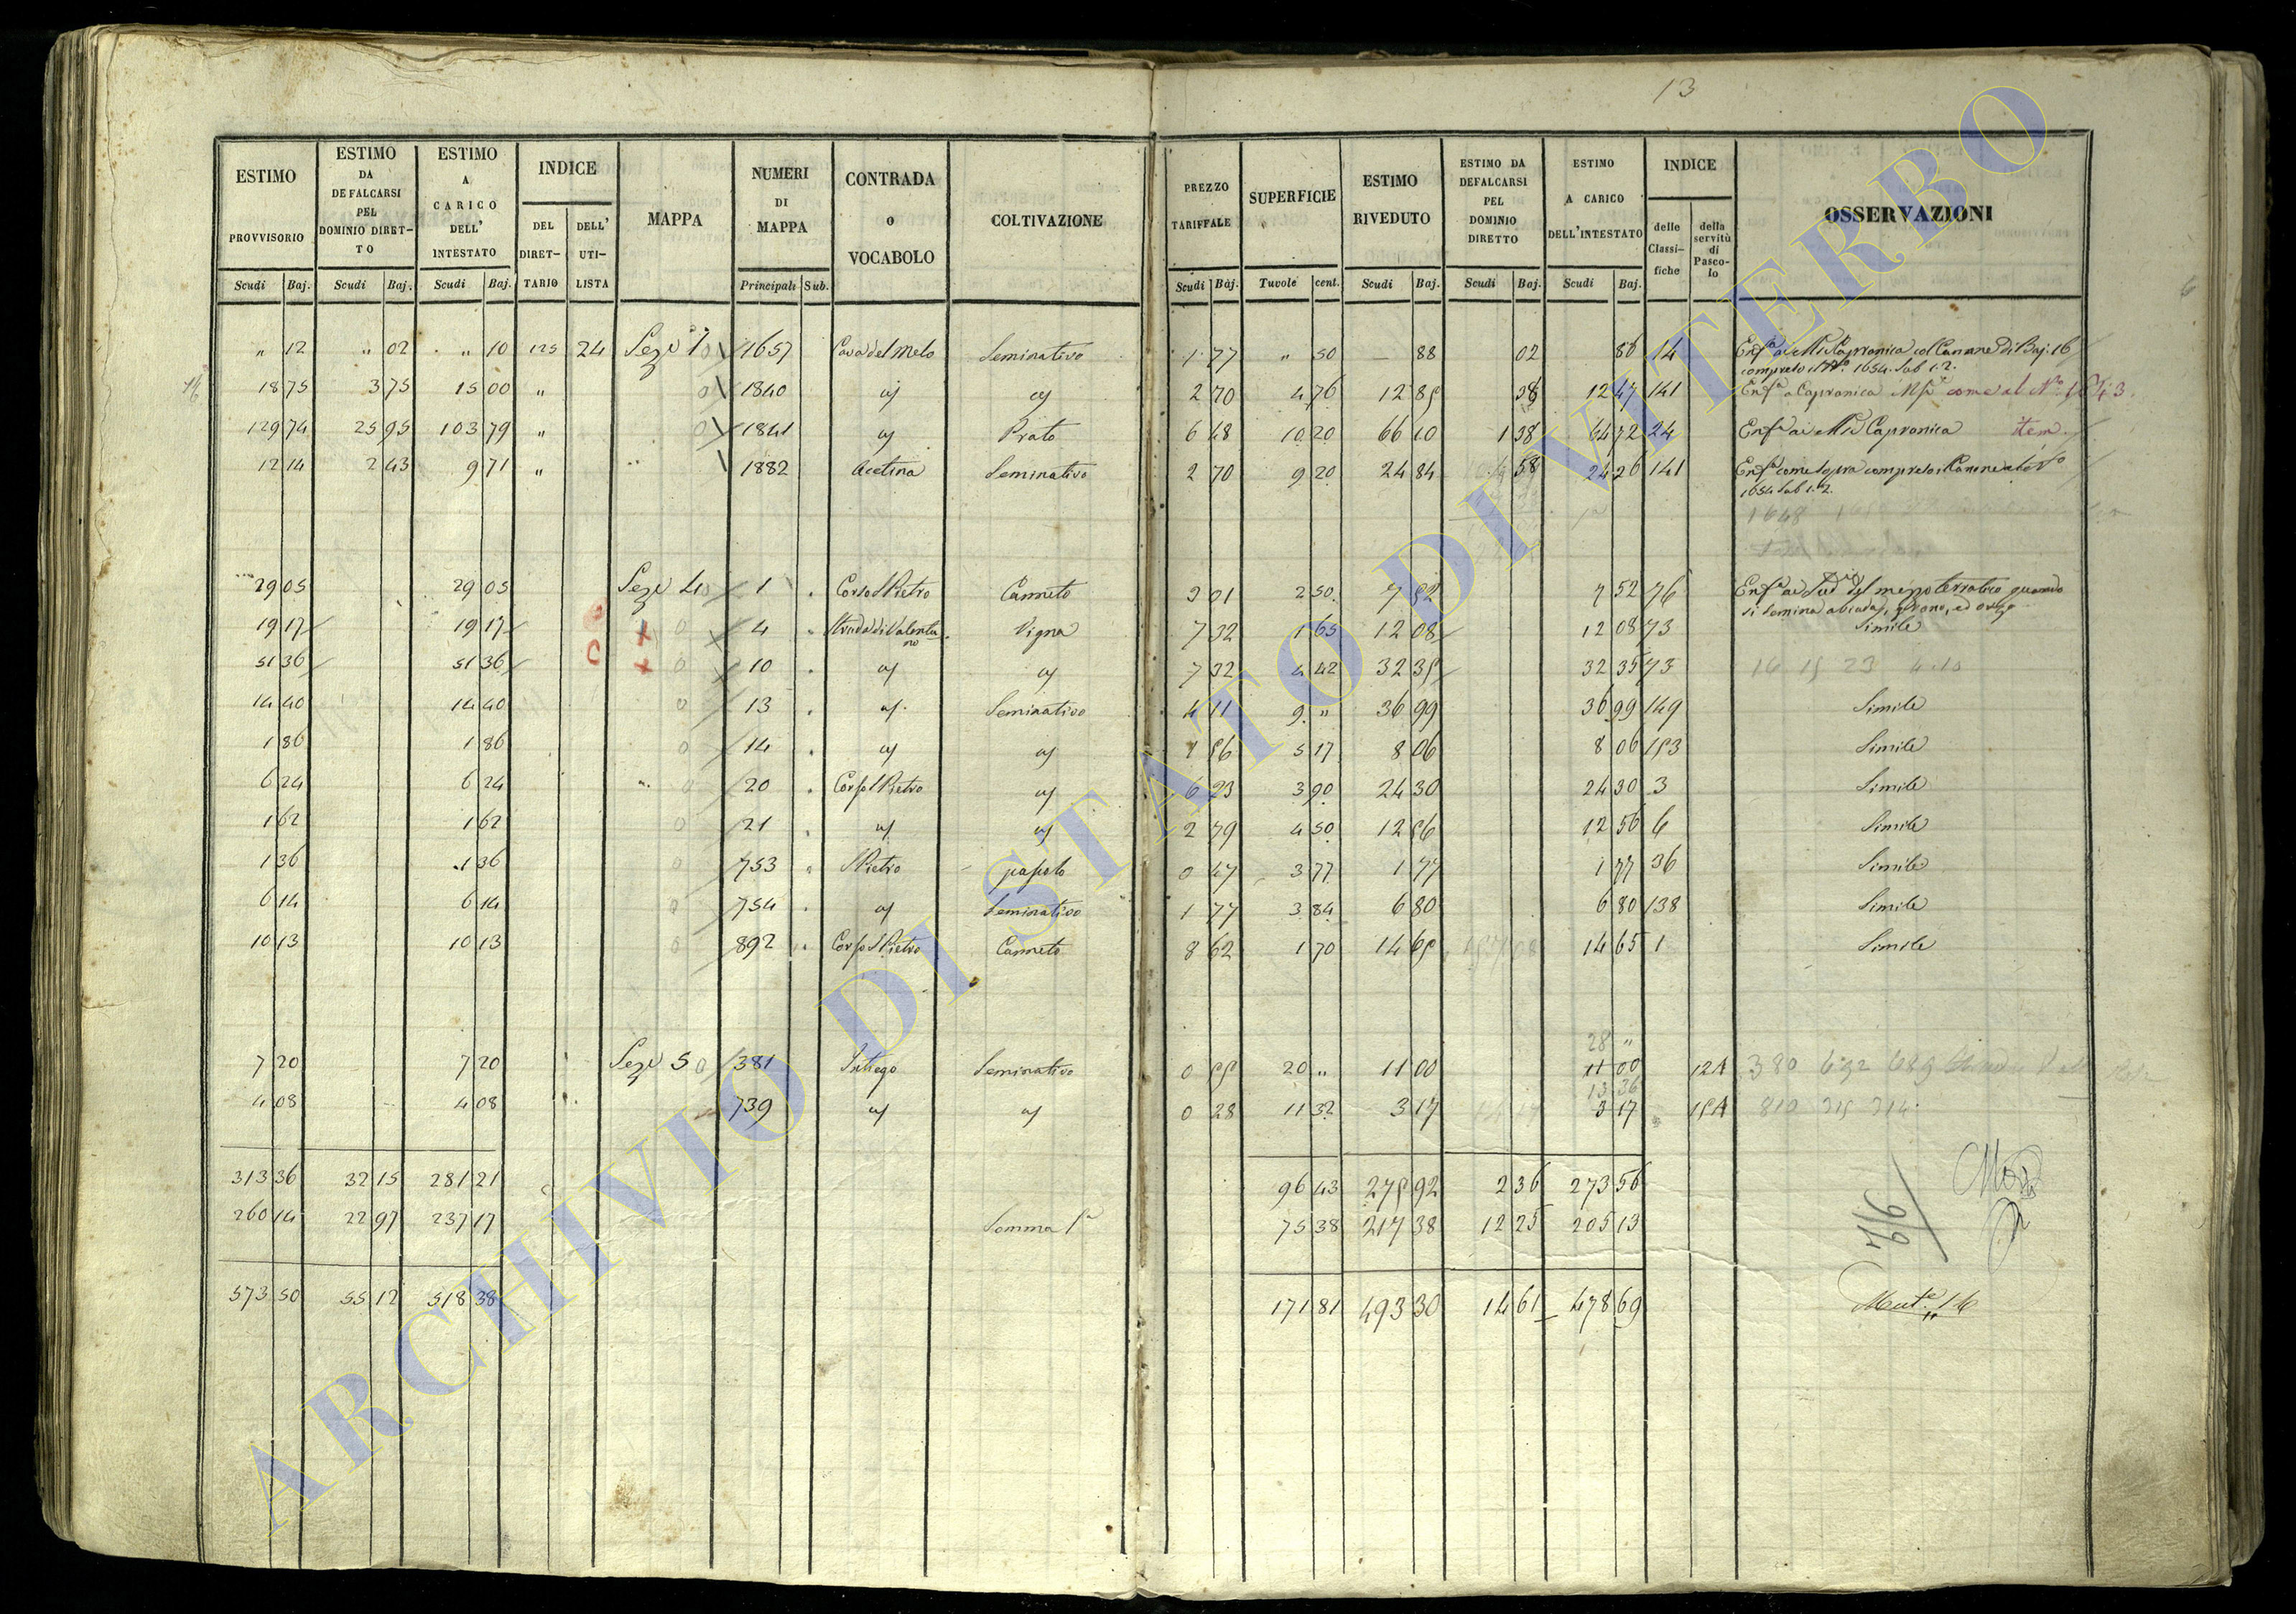 13
ESTIMO PROVVISORIO Scudi Baj. | ESTIMO DA DEFALCARSI PEL DOMINIO DIRETTO Scudi Baj. | ESTIMO A CARICO DELL' INTESTATO Scudi Baj. | INDICE DEL DIRETTARIO | DELL' UTILISTA | MAPPA | NUMERI DI MAPPA Principali Sub. | CONTRADA o VOCABOLO | COLTIVAZIONE | PREZZO TARIFFALE Scudi Baj. | SUPERFICIE Tavole cent. | ESTIMO RIVEDUTO Scudi Baj. | ESTIMO DA DEFALCARSI PEL DOMINIO DIRETTO Scudi Baj. | ESTIMO A CARICO DELL'INTESTATO Scudi Baj. | INDICE delle Classifiche | della servitù di Pascolo | OSSERVAZIONI
" 12 | " 02 | " 10 | 125 | 24 | Sezе 1ª | 1657 | Cava del Melo | Seminativo | 1 77 | " 50 | — 88 | 02 | 86 | 14 | Enfª ai Capranica col Canone di Baj. 16
compreso il Nº 1654. Sub 1.2.
18 75 | 3 75 | 15 00 | " | 1840 | aj | aj | 2 70 | 4 76 | 12 85 | 38 | 12 47 | 141 | Enfª a Capranica come al Nº 1643.
129 74 | 25 95 | 103 79 | " | 1841 | aj | Prato | 6 48 | 10 20 | 66 10 | 1 38 | 64 72 | 24 | Enfª ai Capranica Item
12 14 | 2 43 | 9 71 | " | " | 1882 | Acetina | Seminativo | 2 70 | 9 20 | 24 84 | 58 | 24 26 | 141 | Enfª come sopra compreso il Canone al Nº
1654 Sub 1.2.
29 05 | 29 05 | Seze 4 | 1 | Corso S Pietro | Canneto | 3 01 | 2 50 | 7 52 | 7 52 | 76 | Enfª ad del mezzo terratico quando
si semina a biada, grano, ed orzo
19 17 | 19 17 | 4 | Strada di Valentano | Vigna | 7 32 | 1 65 | 12 08 | 12 08 | 73 | Simile
51 36 | 51 36 | 10 | aj | aj | 7 32 | 4 42 | 32 35 | 32 35 | 73
14 40 | 14 40 | 13 | aj | Seminativo | 4 11 | 9 " | 36 99 | 36 99 | 149 | Simile
1 86 | 1 86 | 14 | aj | aj | 1 56 | 5 17 | 8 06 | 8 06 | 153 | Simile
6 24 | 6 24 | " | 20 | Corso S Pietro | aj | 6 23 | 3 90 | 24 30 | 24 30 | 3 | Simile
1 62 | 1 62 | 21 | aj | aj | 2 79 | 4 50 | 12 56 | 12 56 | 6 | Simile
1 36 | 1 36 | 753 | S Pietro | pascolo | 0 47 | 3 77 | 1 77 | 1 77 | 36 | Simile
6 14 | 6 14 | 754 | aj | Seminativo | 1 77 | 3 84 | 6 80 | 6 80 | 138 | Simile
10 13 | 10 13 | 892 | Corso S Pietro | Canneto | 8 62 | 1 70 | 14 65 | 14 65 | 1 | Simile
28 "
7 20 | 7 20 | Seze 5 | 381 | Seminativo | 0 55 | 20 " | 11 00 | 11 00 | 12A
13 36
4 08 | 4 08 | 739 | aj | aj | 0 28 | 11 32 | 3 17 | 3 17 | 15A
313 36 | 32 15 | 281 21 | 96 43 | 275 92 | 2 36 | 273 56
260 14 | 22 97 | 237 17 | Somma 1ª | 75 38 | 217 38 | 12 25 | 205 13
573 50 | 55 12 | 518 38 | 171 81 | 493 30 | 14 61 | 478 69
ARCHIVIO DI STATO DI VITERBO